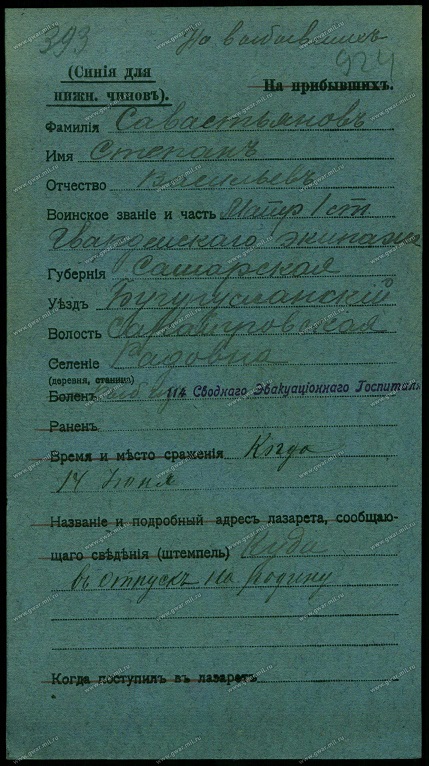 393 На выбывшихъ
924
(Синія для
нижн. чиновъ).
На прибывшихъ.
Фамилія Савастьяновъ
Имя Степанъ
Отчество Васильевъ
Воинское званіе и часть Матр 1 ст
Гвардейскаго экипажа
Губернія Самарская
Уѣздъ Бугурусланскій
Волость
Селеніе
(деревня, станица)
Боленъ 114 Своднаго Эвакуаціоннаго Госпиталя
Раненъ
Время и мѣсто сраженія Когда
14 Іюня
Названіе и подробный адресъ лазарета, сообщаю-
щаго свѣдѣнія (штемпель) Куда
въ отпускъ на родину
Когда поступилъ въ лазаретъ
www.gwar.mil.ru